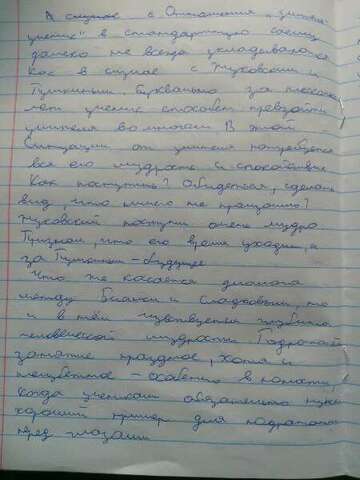 А случае с Отношения „учитель
ученик" в стандартную схему
далеко не всегда укладываются
Как в случае с Жуковским и
Пушкиным. Буквально за несколько
лет ученик способен превзойти
учителя во многом В этой
ситуации от учителя потребуется
вся его мудрость и спокойствие
Как поступить? Обидеться, сделать
вид, что ничего не произошло?
Жуковский поступил очень мудро
Признал, что его время уходит, а
за Пушкиным - будущее
Что же касается диалога
между Бианки и Сладковым, то
и в нём чувствуется глубина
человеческой мудрости Подражание
занятие праздное, хотя и
- особенно в начале
когда ученикам обязательно нужен
хороший пример для подражания
перед глазами